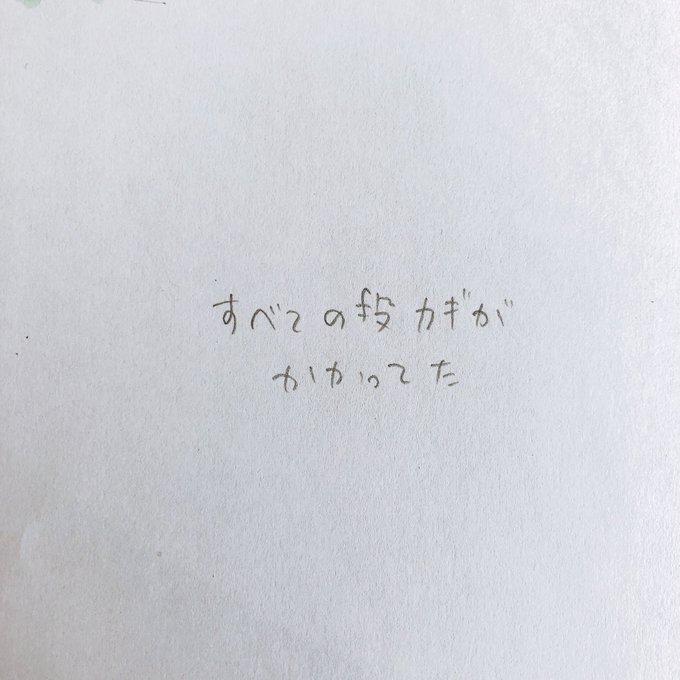 すべての カギが
かかってた